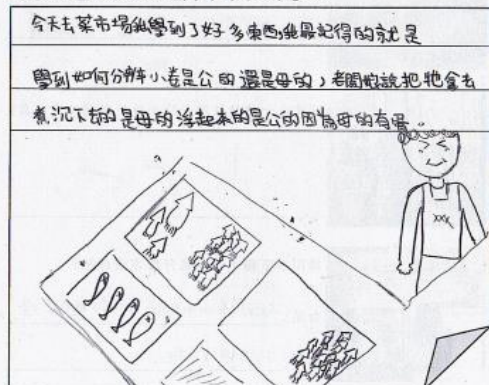 今天去菜市場我學到了好多東西,我最記得的就是
學到如何分辨小卷是公的還是母的,老闆娘說把牠拿去
煮沉下去的是母的浮起來的是公的因為母的有蛋..
XXX